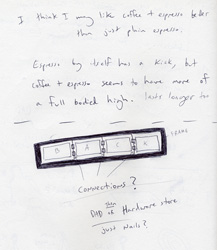 I think I may like coffee + espresso better
than just plain espresso.
Espresso by itself has a kick, but
coffee + espresso seems to have more of
a full bodied high. lasts longer too
B A C K
connections?
Then
DID or Hardware store
Just Nails?